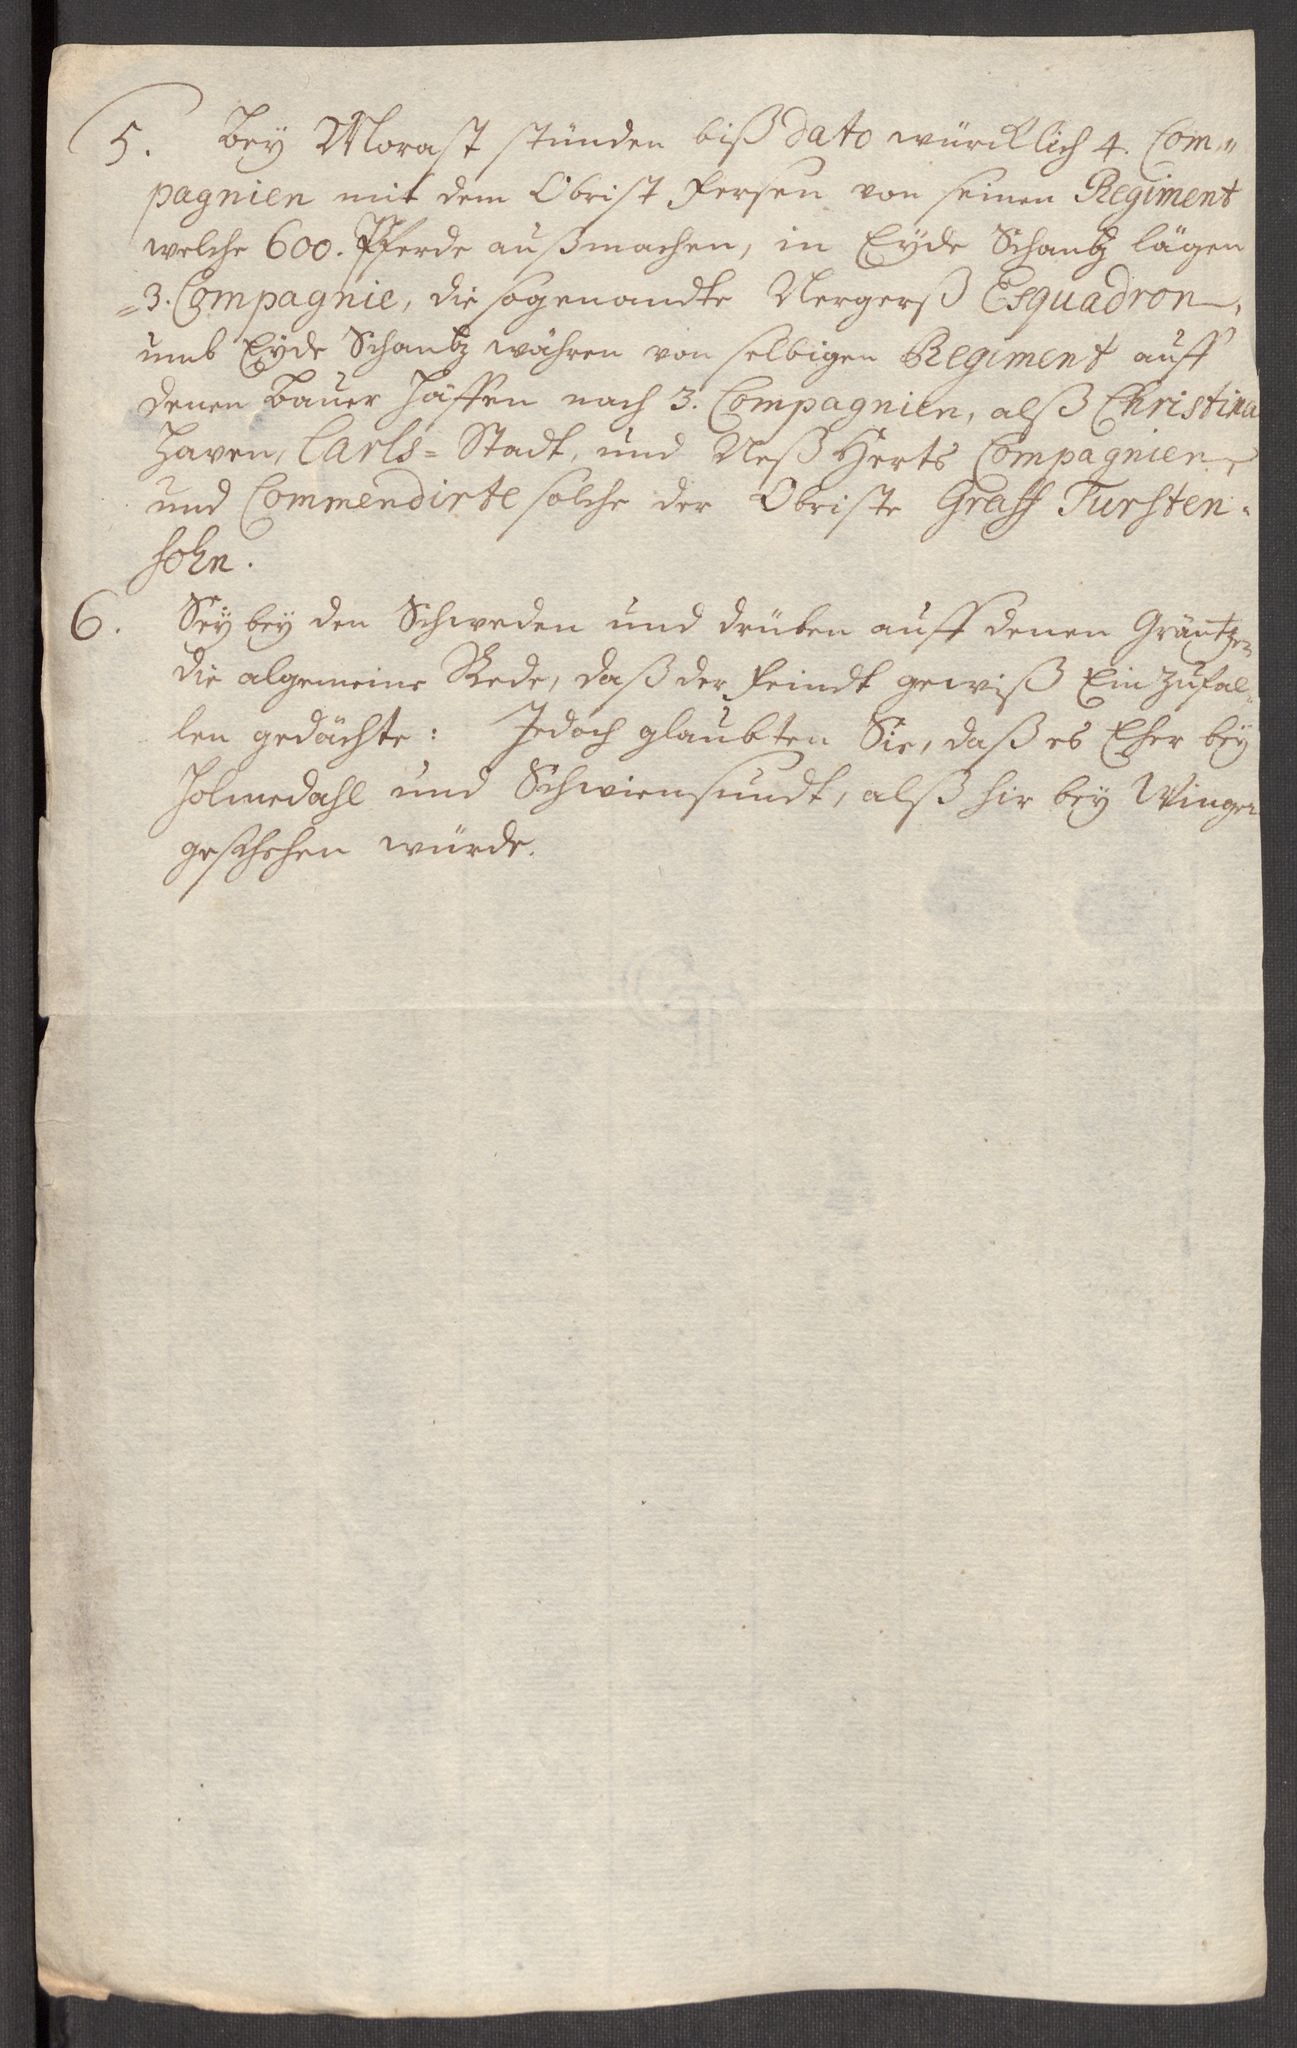 5. Bey Morast stünden biß dato würcklich 4. Com„
pagnien mit dem Obrist Fersen von seinen Regiment
welche 600. Pferde außmachen, in Eyde Schantz lägen
=3. Compagnie, die sogenandte Nergerß Esquadron,
umb Eyde Schantz währen von selbigen Regiment auff
denen Bauer Häffen noch 3. Compagnien, alß Christina
Haven, Carls=Stadt, und Neß Herts Compagnien,
und Commendirte solche der Obriste Graff Tursten=
sohn.
6. Seÿ beÿ den Schweden und drüben auff denen Gräntzen
die algemeine Rede, daß der Feindt gewiß Ein zufal„
len gedächte: Jedoch glaubten Sie, daß es Eher beÿ
Holmedahl und Schwiensundt, alß hir beÿ Winger
geschehen würde.